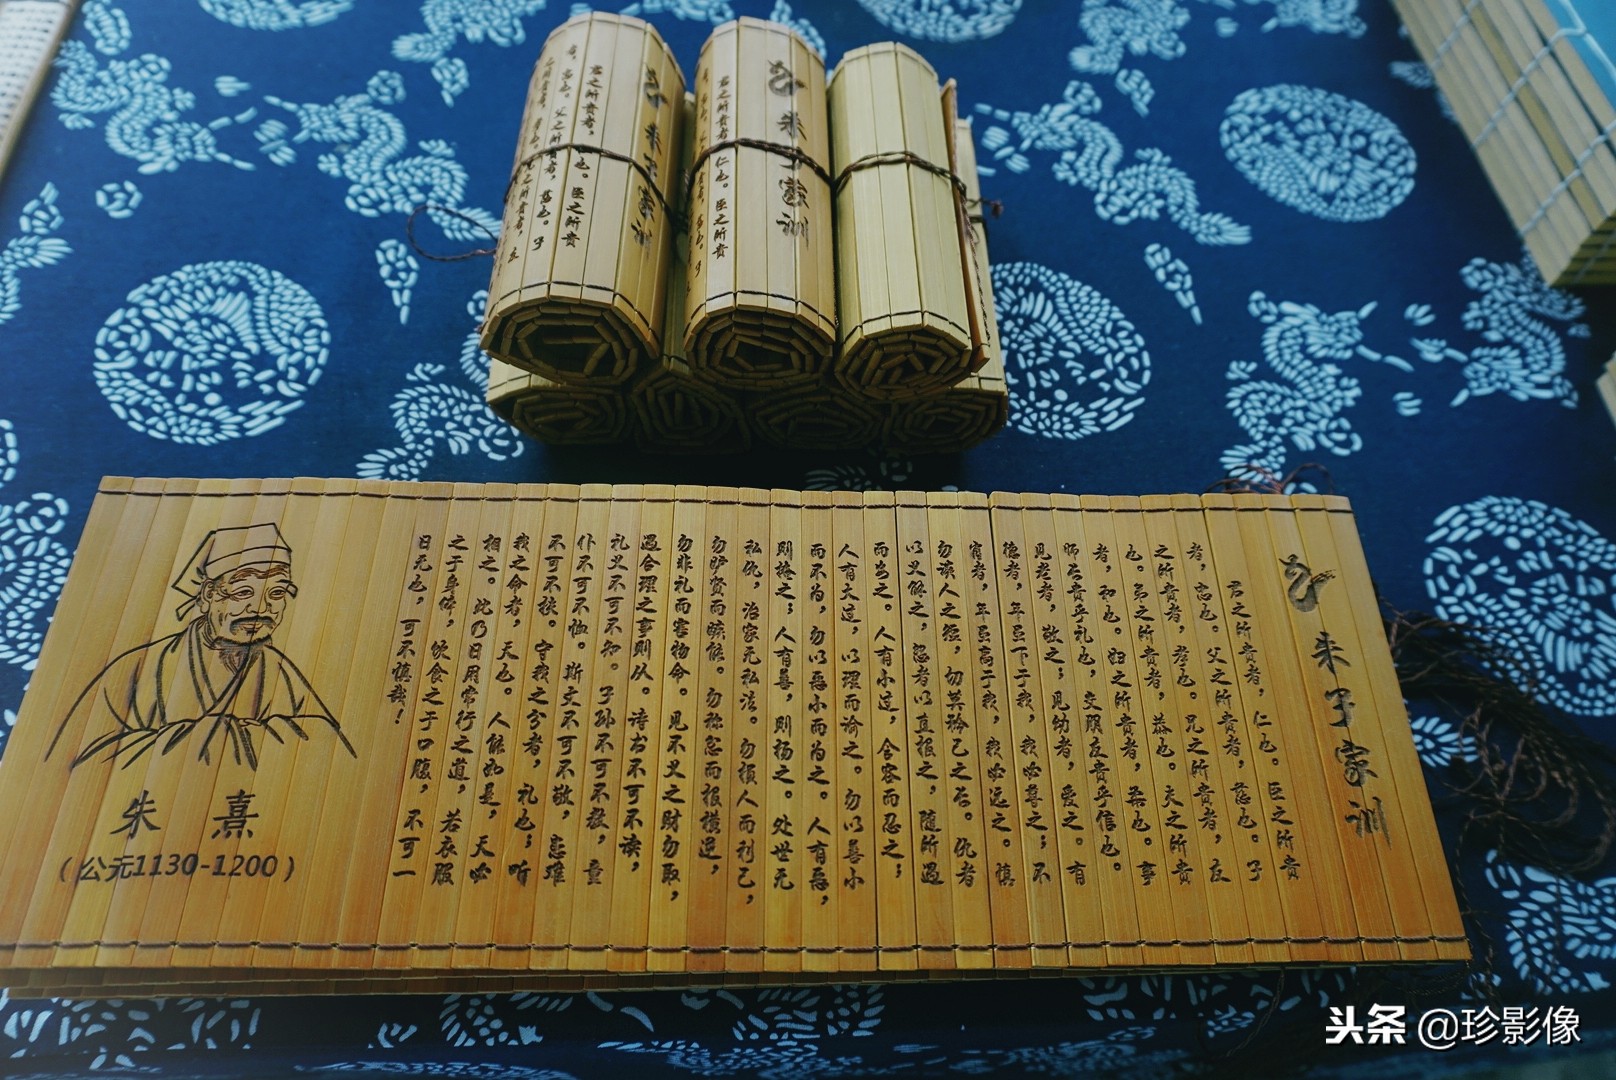 朱子家训
君之所贵者，仁也。臣之所贵
者，忠也。父之所贵者，慈也。子
之所贵者，孝也。兄之所贵者，友
也。弟之所贵者，恭也。夫之所贵
者，和也。妇之所贵者，柔也。事
师长贵乎礼也，交朋友贵乎信也。
见老者，敬之；见幼者，爱之。有
德者，年虽下于我，我必尊之；不
肖者，年虽高于我，我必远之。慎
勿谈人之短，切莫矜己之长。仇者
以义解之，怨者以直报之，随所遇
而安之。人有小过，含容而忍之；
人有大过，以理而谕之。勿以善小
而不为，勿以恶小而为之。人有恶，
则掩之；人有善，则扬之。处世无
私仇，治家无私法。勿损人而利己，
勿妒贤而嫉能。勿称忿而报横逆，
勿非礼而害物命。见不义之财勿取，
遇合理之事则从。诗书不可不读，
礼义不可不知。子孙不可不教，童
仆不可不恤。斯文不可不敬，患难
不可不扶。守我之分者，礼也；听
我之命者，天也。人能如是，天必
相之。此乃日用常行之道，若衣服
之于身体，饮食之于口腹，不可一
日无也，可不慎哉！
朱熹
（公元1130-1200）
朱子家训
君之所贵者，
也。臣之所贵
朱子家训
君之所贵者
仁也。臣之所贵
头条 @珍影像